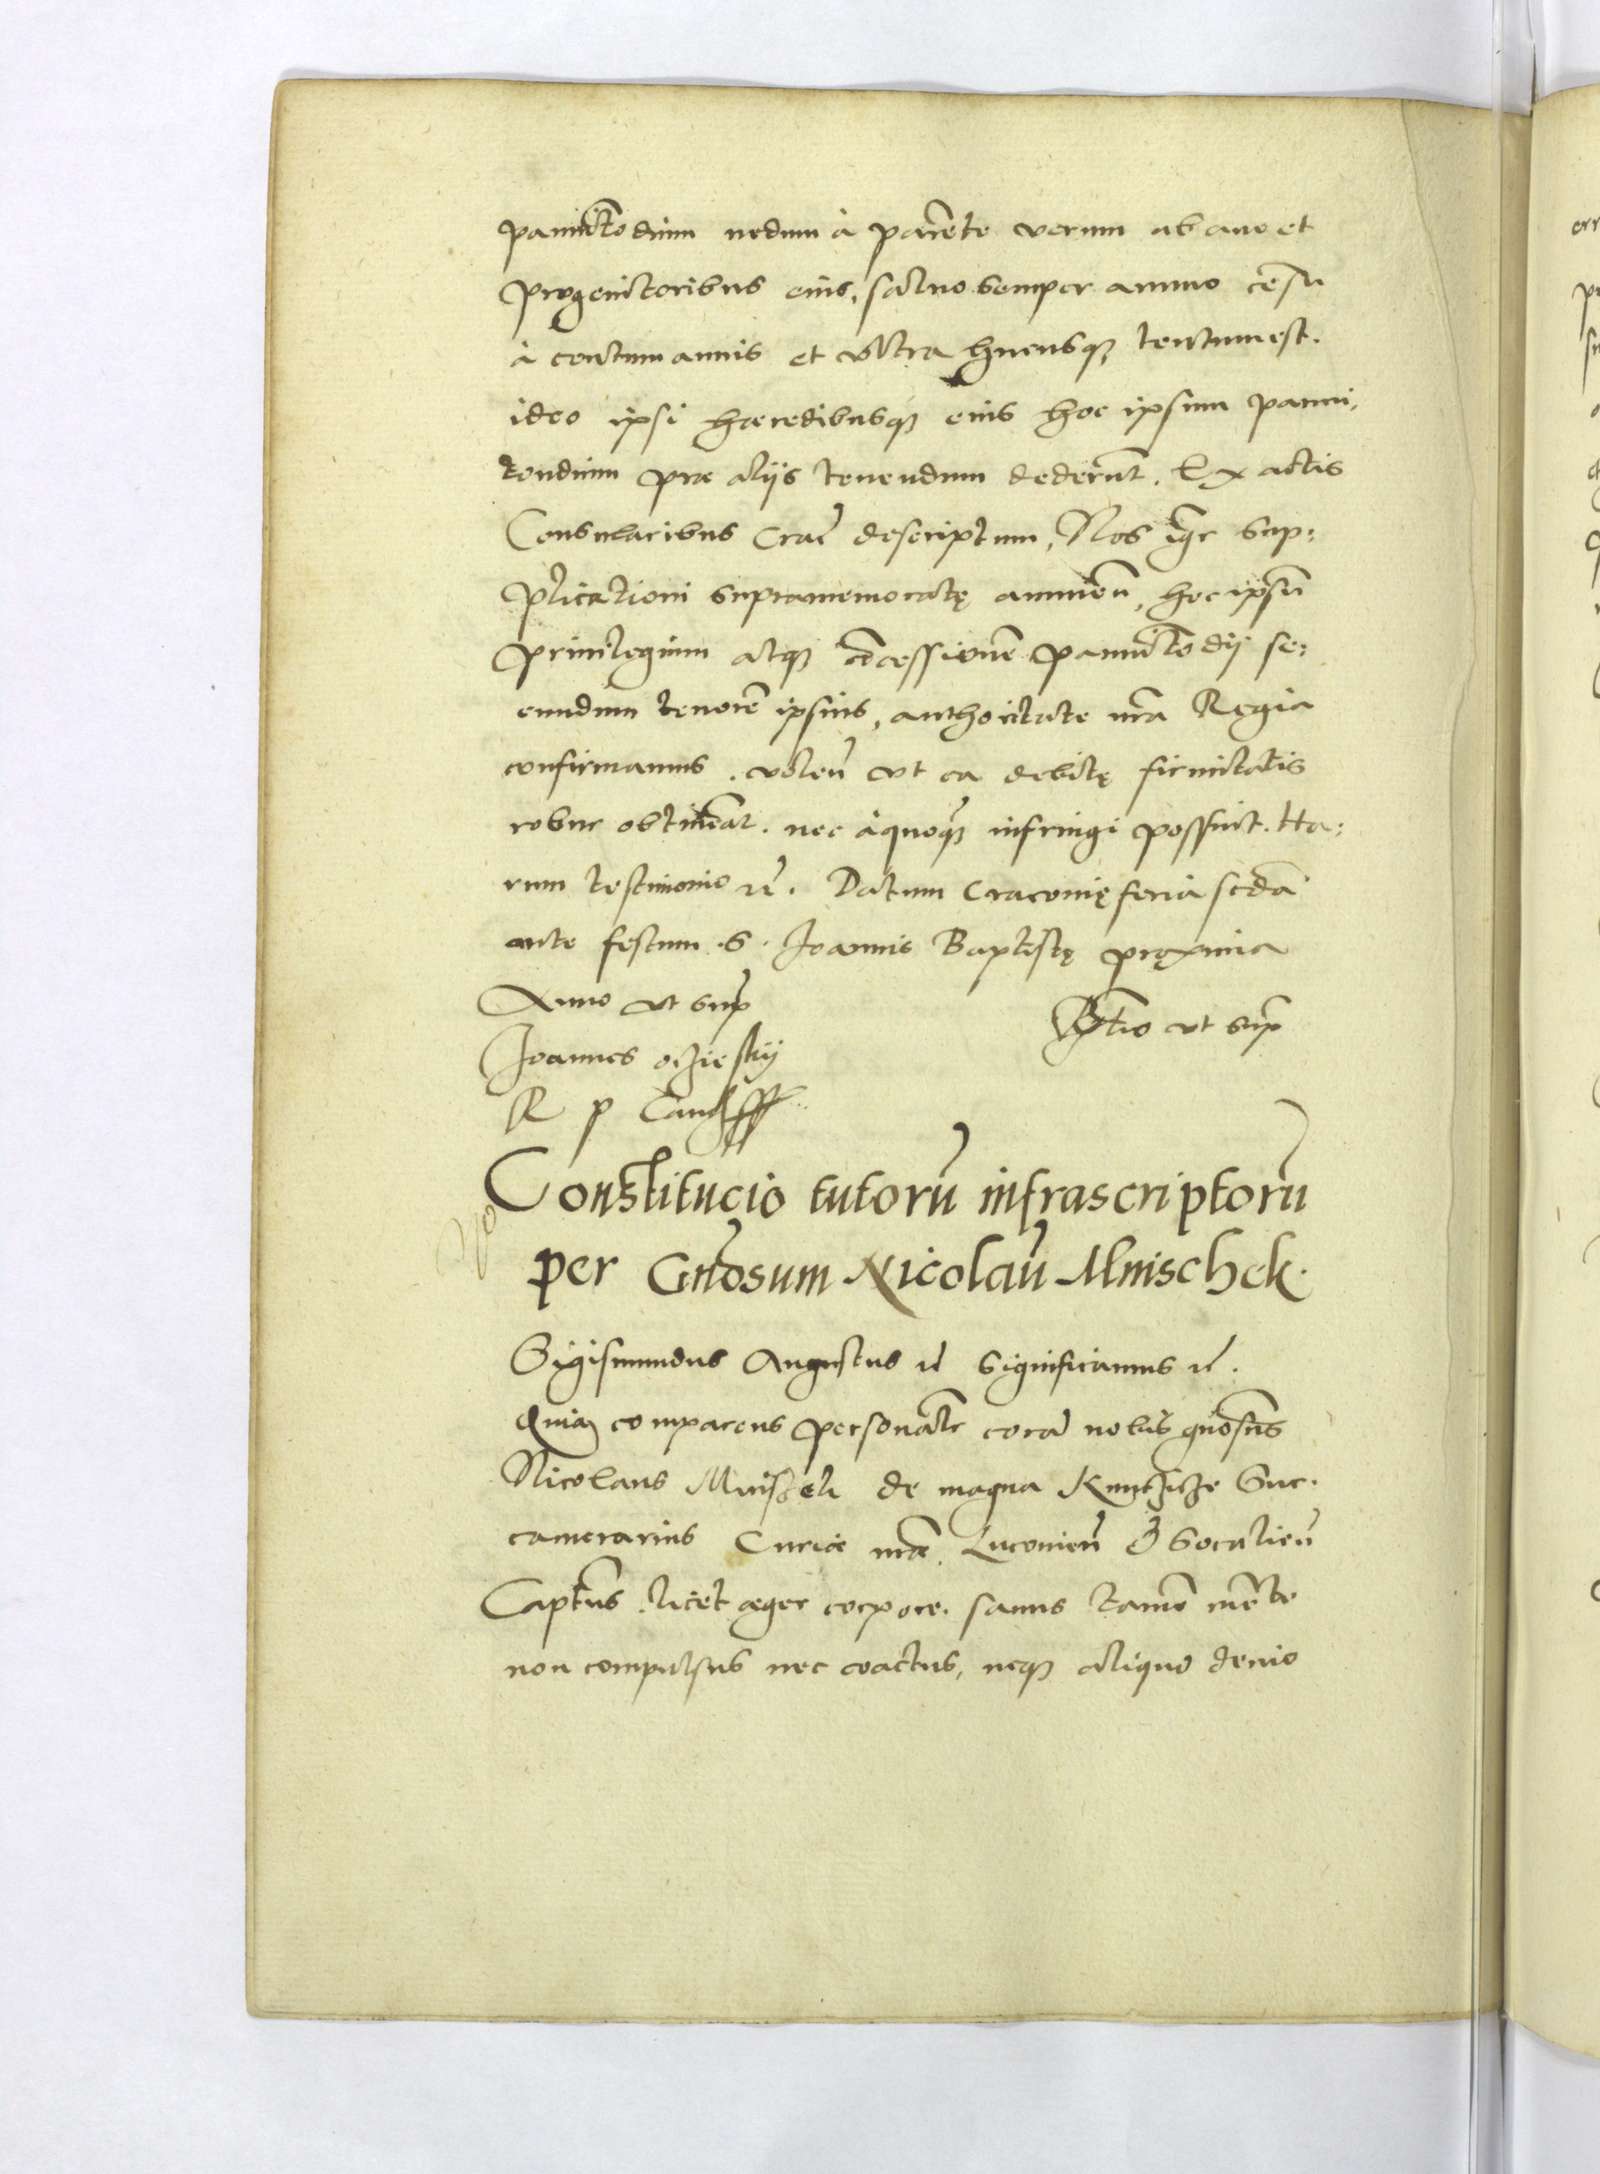 pannitōdium nedum à parēte verum ab auo et
progenitoribus eius, saluo semper annuo cēsu
à centum annis et vltra hucusq̧ tentum est.
ideo ipsi hæredibusq̧ eius hoc ipsum panni,
tondium præ alijs tenendum dederūt. Ex actis
Consularibus Crac̄ descriptum, Nos igr̄ sup:
plicationi supramemoratę annueñ, hoc ipsū
priuilegium atq̧ cōcessionē pannitōdij se:
cundum tenorē ipsius, authoritate nrā Regia
confirmamus. voleñ vt ea debitę firmitatis
robur obtineāt. nec à quoq̄ infringi possint. Ha:
rum testimonio etc̄. Datum Cracouię feria scdā
ante festum .S. Joannis Baptistę proxima
Anno vt supȓ
Rtio vt supȓ
Joannes oczieskij
R p Canc̄
Constitucio tutorū infrascriptorū
per Gnōsum Nicolaū Mnischek.
Sigismundus Augustus etc̄ Significamus etc̄.
Quia comparens personalr̄ corā nobis gnōsus
Nicolaus Mnischek de magna Kunczicze Suc:
camerarius Curiæ nræ, Lucovieñ & Socalieñ
Captn̄s. licet æger corpore. sanus tamē mēte
non compulsus nec coactus, neq̧ aliquo deuio